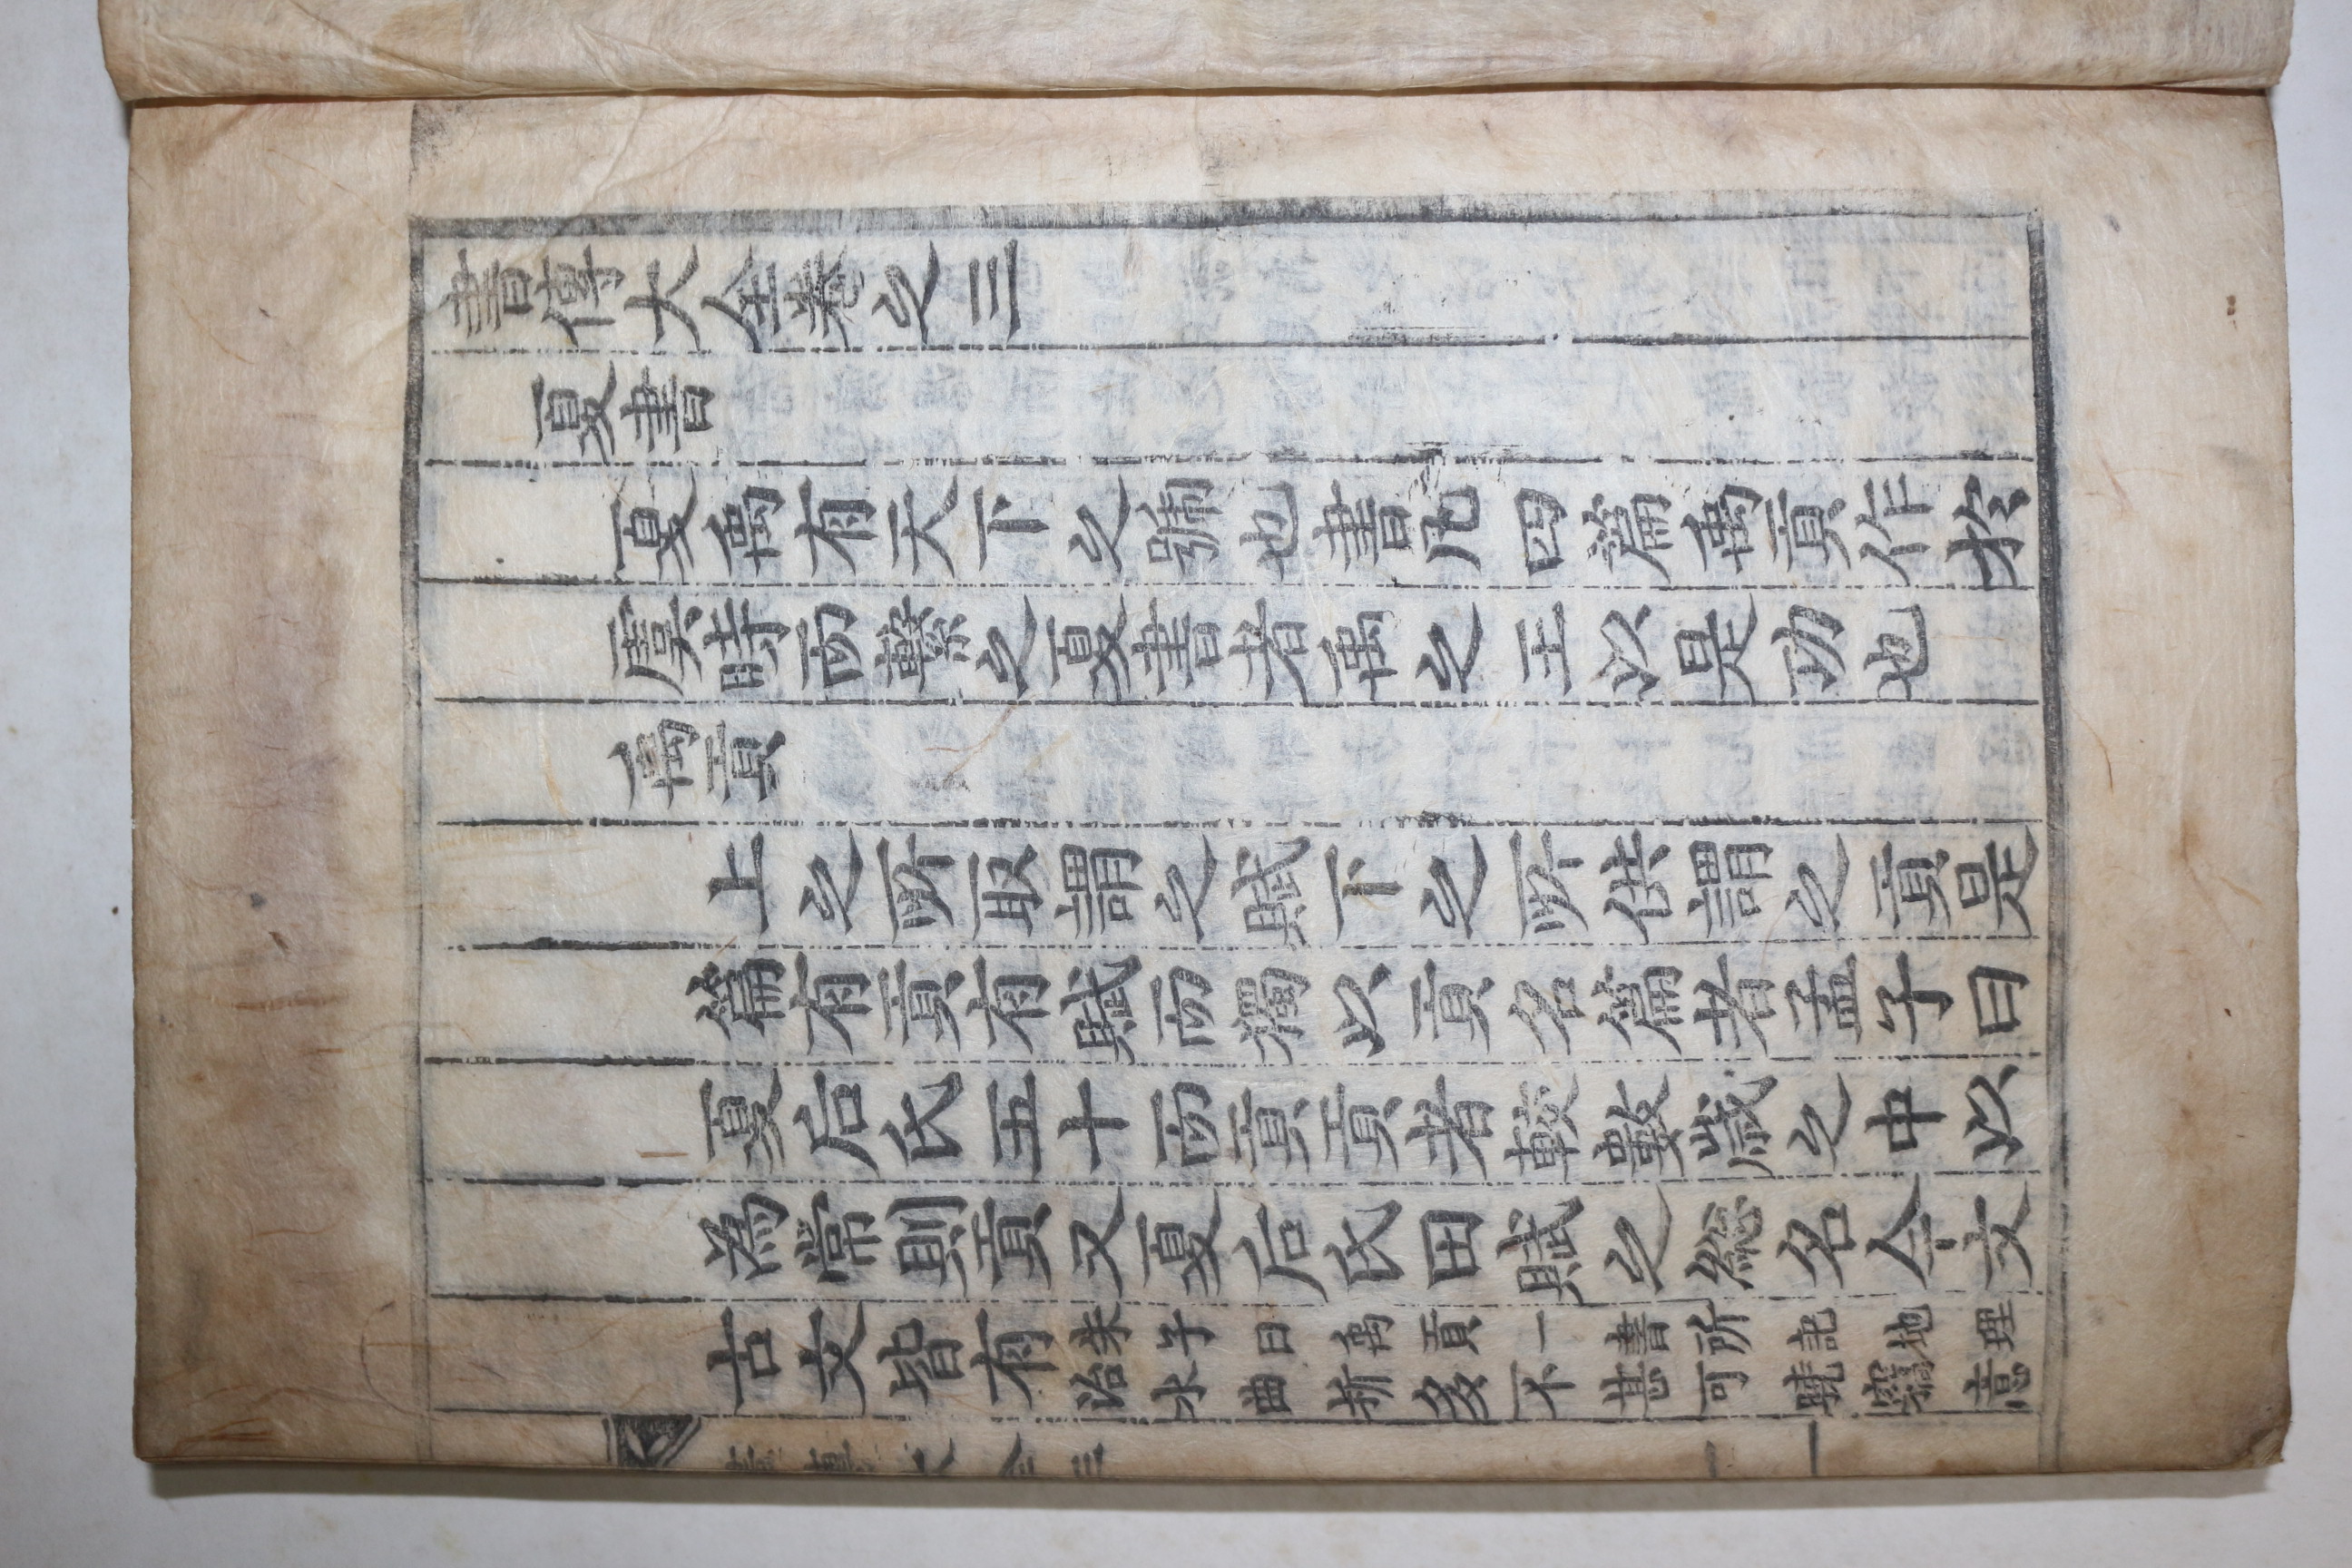 書傳大全卷之三
夏書
夏禹有天下之號也書凡四篇禹貢作於
虞時而繫之夏書者禹之王以是功也
禹貢
上之所取謂之賦下之所供謂之貢是
篇有貢有賦而獨以貢名篇者孟子曰
夏后氏五十而貢貢者較數歲之中以
為常則貢又夏后氏田賦之総名今文
古文皆有
朱子曰禹貢一書所記地理
治水曲折多不甚可曉竊意
書傳大全三
一